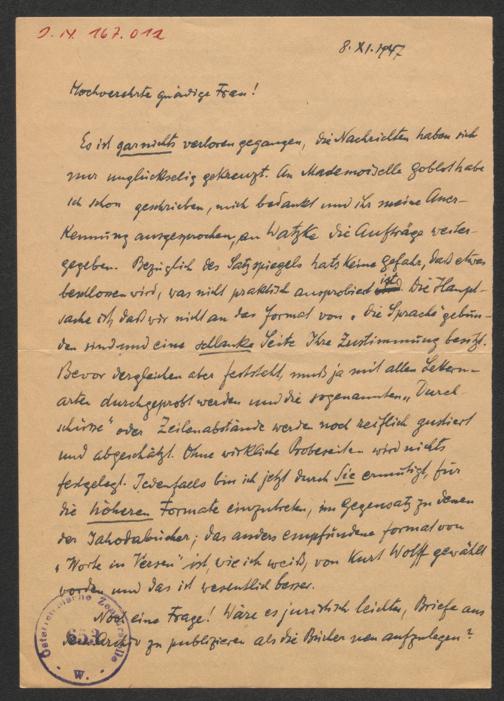 J.N. 167.012
8. XI. 1947
Hochverehrte gnädige Frau!
Es ist gar nichts verloren gegangen, die Nachrichten haben sich
nur unglückselig gekreuzt. An Mademoiselle Goblot habe
ich schon geschrieben, mich bedankt und ihr meine Aner-
kennung ausgesprochen, an Watzke die Aufträge weiter-
gegeben. Bezüglich des Satzspiegels hats keine Gefahr, daß etwas
beschlossen wird, was nicht praktisch ausprobiert ist. Die Haupt-
sache ist, daß wir nicht an das Format von „Die Sprache" gebun-
den sind und eine schlanke Seite Ihre Zustimmung besitzt.
Bevor dergleichen aber feststeht, muß ja mit allen Lettern-
arten durchgeprobt werden und die sogenannten „Durch-
schüsse" oder Zeilenabstände werden noch reiflich gustiert
und abgeschätzt. Ohne wirkliche Probeseiten wird nichts
festgelegt. Jedenfalls bin ich jetzt durch Sie ermutigt, für
die höheren Formate einzutreten, im Gegensatz zu denen
der Jahodabücher; das anders empfundene Format von
„Worte in Versen" ist, wie ich weiß, von Kurt Wolff gewählt
worden und das ist wesentlich besser.
Noch eine Frage! Wäre es juristisch leichter, Briefe aus
dem Archiv zu publizieren als die Bücher neu aufzulegen?
653
W.